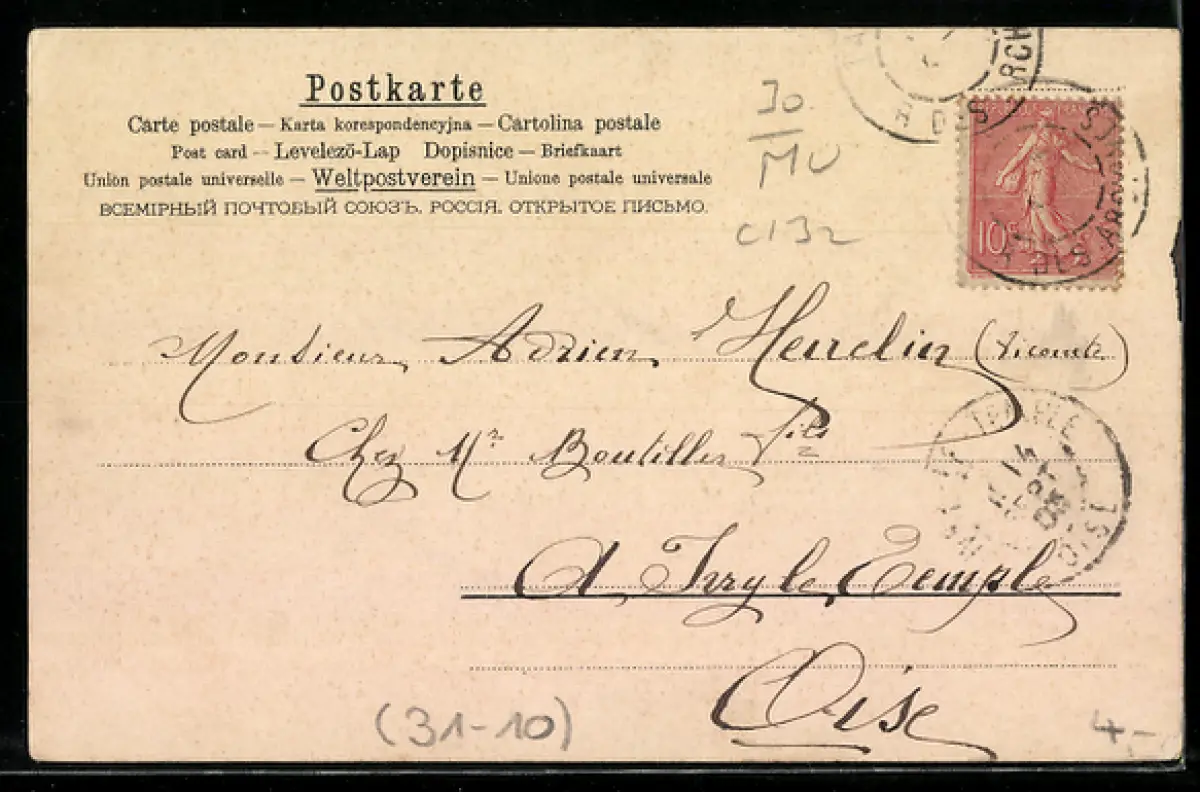 Postkarte
Carte postale — Karta korespondencyjna — Cartolina postale
Post card — Levelező-Lap Dopisnice — Briefkaart
Union postale universelle — Weltpostverein — Unione postale universale
ВСЕМІРНЫЙ ПОЧТОВЫЙ СОЮЗЪ. РОССІЯ. ОТКРЫТОЕ ПИСЬМО.
30
MU
C132
10
R. DES ARCH
R. DES ARCH
Monsieur Adrien (Vicomte)
Chez Mr Boutillier fils
IVRY LE TEMPLE
14
SEPT
05
OISE
A Ivry le Temple
Oise
(31-10)
4.-